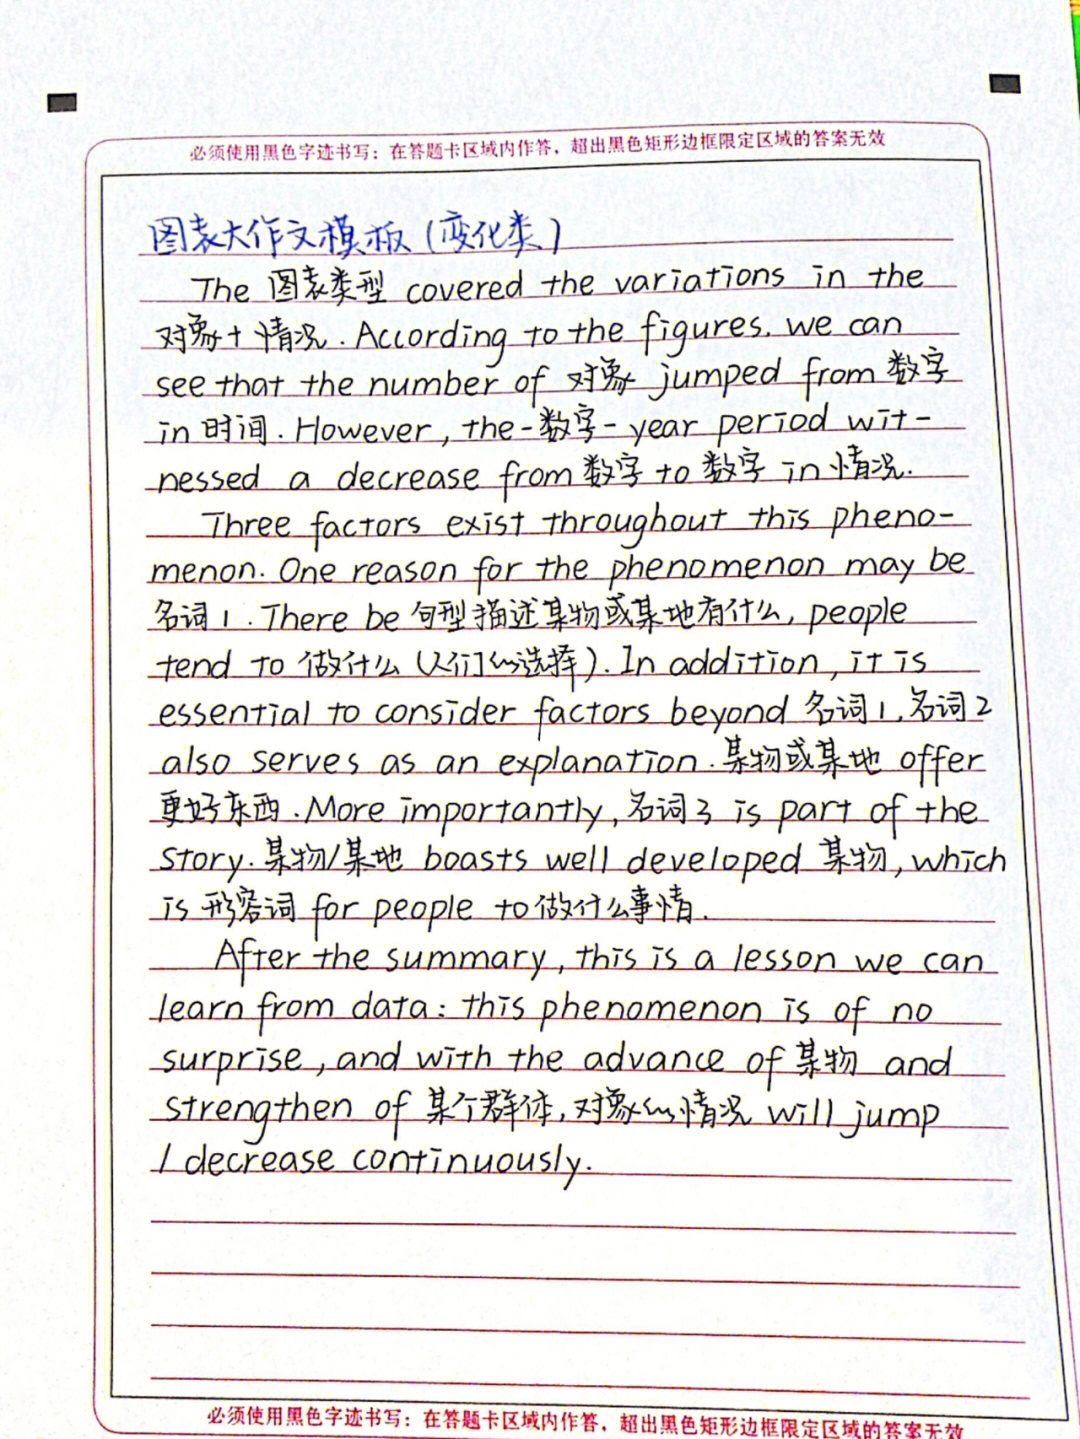 必须使用黑色字迹书写：在答题卡区域内作答，超出黑色矩形边框限定区域的答案无效
图表大作文模板(变化类)
The 图表类型 covered the variations in the
对象+情况. According to the figures. we can
see that the number of 对象 jumped from 数字
in 时间. However, the-数字-year period wit-
nessed a decrease from 数字 to 数字 in 情况.
Three factors exist throughout this pheno-
menon. One reason for the phenomenon may be
名词1. There be 句型描述某物或某地有什么, people
tend to 做什么(人们的选择). In addition, it is
essential to consider factors beyond 名词1,名词2
also serves as an explanation. 某物或某地 offer
更好东西. More importantly, 名词3 is part of the
story. 某物/某地 boasts well developed 某物, which
is 形容词 for people to 做什么事情.
After the summary, this is a lesson we can
learn from data: this phenomenon is of no
surprise, and with the advance of 某物 and
strengthen of 某个群体, 对象的情况 will jump
/decrease continuously.
必须使用黑色字迹书写：在答题卡区域内作答，超出黑色矩形边框限定区域的答案无效